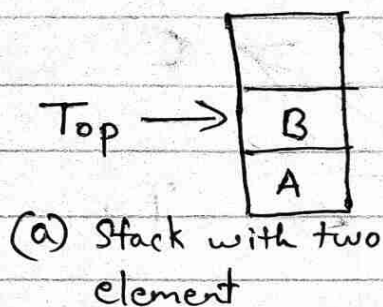 Top → B
A
(a) Stack with two
element